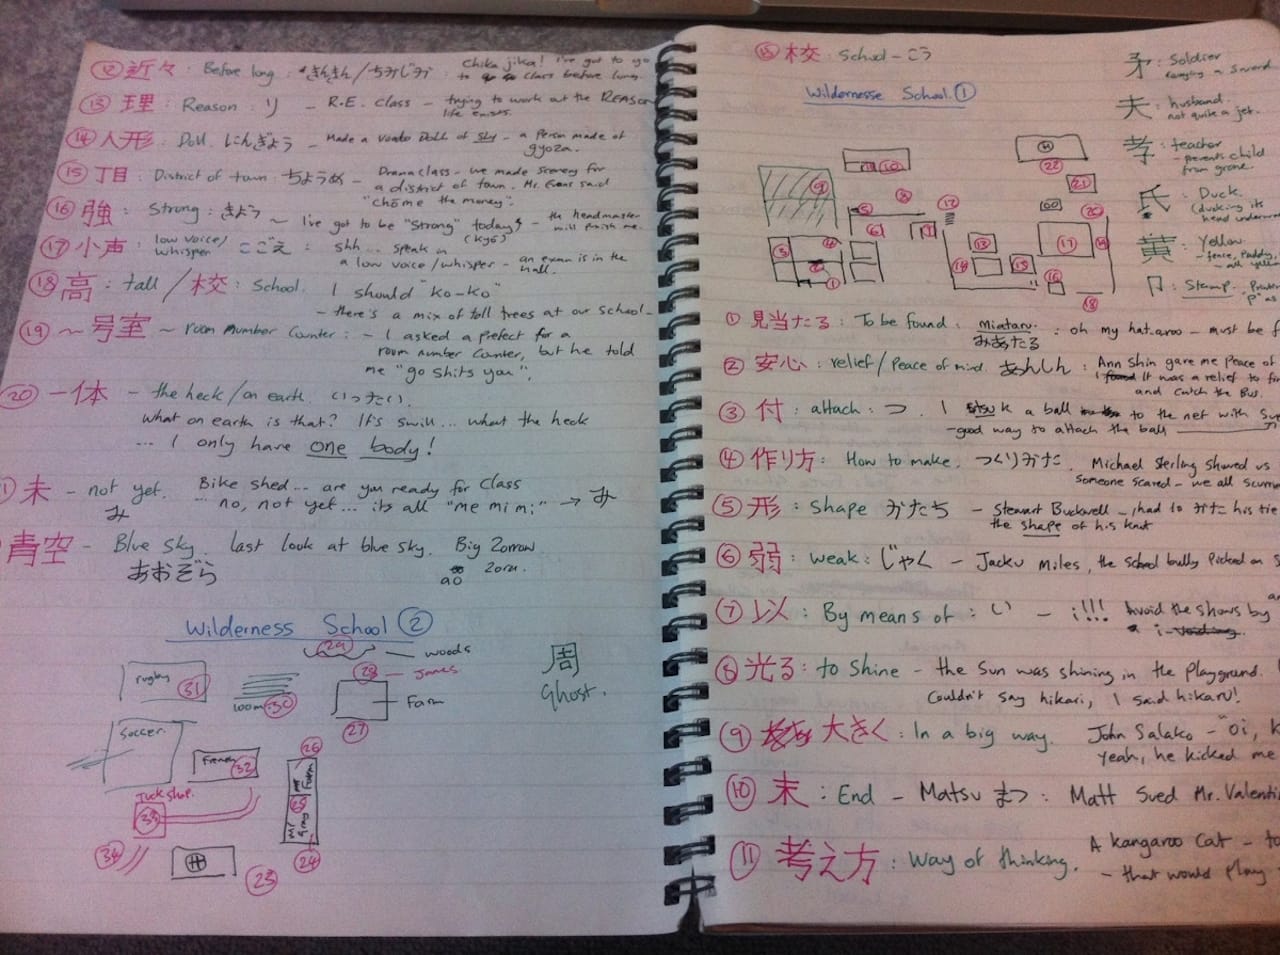 ⑫ 近々 : Before long : きんきん / ちかぢか Chika jika! I've got to go
to class before long.
⑬ 理 : Reason : り – R.E. class – trying to work out the REASON
life exists.
⑭ 人形 : Doll にんぎょう – Made a voodo Doll of sky – a person made of
gyoza.
⑮ 丁目 : District of town ちょうめ – Drama class – we made scenery for
a district of town. Mr. Evans said
"chōme the money".
⑯ 強 : Strong : きょう ~ I've got to be "Strong" today – the headmaster
(kyō) will punish me.
⑰ 小声 low voice / whisper こごえ : shh... speak in
a low voice / whisper – an exam is in the
hall.
⑱ 高 : tall / 校 : School. I should "ko-ko"
– there's a mix of tall trees at our school –
⑲ ~号室 ~ room number counter : – I asked a prefect for a
room number counter, but he told
me "go shits you".
⑳ 一体 – the heck / on earth. いったい.
What on earth is that? It's swill... what the heck
... I only have one body!
1) 未 – not yet. Bike shed... are you ready for class
み ... no, not yet... its all "me mi mi" → み
青空 – Blue sky. last look at blue sky. Big Zorrow
あおぞら ao zora.
Wilderness School ②
29 woods
rugby 31
100m 30
28 – James
Farm
27
周
Ghost.
Soccer.
French 32
26
Farm
25
Mr Gray
24
Tuck shop.
33
34
H
23
⑮ 校 : School – こう
Wildernesse School. ①
矛 : Soldier
carrying a sword.
夫 : husband
not quite a jet.
孝 : teacher
– prevents child
from grave.
氏 Duck
(ducking its
head underwater
黄 : Yellow
– fence, Paddy,
– all yellow
卩 : Stamp.
① 見当たる : To be found : miataru. みあたる : oh my hat-aroo – must be f
② 安心 : relief / Peace of mind あんしん : Ann Shin gave me peace of
It was a relief to fi
and catch the Bus.
③ 付 : attach : つ. I tsu k a ball to the net with
– good way to attach the ball
④ 作り方 : How to make. つくりかた. Michael Sterling showed us
someone scared – we all
⑤ 形 : Shape かたち – Stewart Buckwell –, had to かた his tie
the shape of his knot
⑥ 弱 : weak : じゃく – Jacku Miles, the school bully picked on
⑦ 以 : By means of : い – i!!! Avoid the shows by
a i-voiding.
⑧ 光る : to Shine – the sun was shining in the playground.
Couldn't say hikari, I said hikaru!
⑨ 大きく : In a big way. John Salako – "oi, k
Yeah, he kicked me
⑩ 末 : End – Matsu まつ : Matt Sued Mr. Valenti
⑪ 考え方 : Way of thinking. A kangaroo cat – to
– that would play